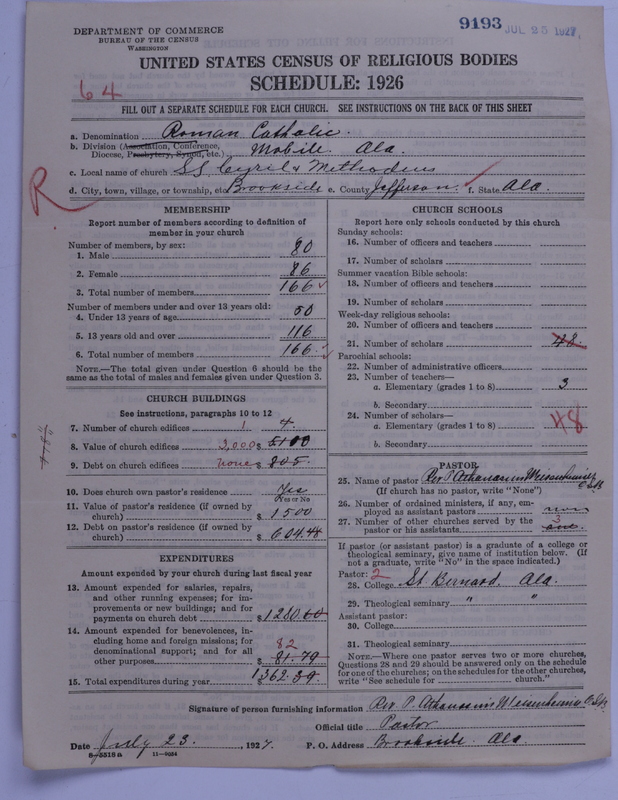 DEPARTMENT OF COMMERCE
BUREAU OF THE CENSUS
WASHINGTON
9193 JUL 25 1927
UNITED STATES CENSUS OF RELIGIOUS BODIES
SCHEDULE: 1926
64
FILL OUT A SEPARATE SCHEDULE FOR EACH CHURCH. SEE INSTRUCTIONS ON THE BACK OF THIS SHEET
a. Denomination Roman Catholic.
b. Division (Association, Conference, Diocese, Presbytery, Synod, etc.) Mobile Ala.
c. Local name of church SS Cyril & Methodius
d. City, town, village, or township, etc. Brookside e. County Jefferson. f. State Ala.
R
MEMBERSHIP
Report number of members according to definition of
member in your church
Number of members, by sex:
1. Male 80
2. Female 86
3. Total number of members 166
Number of members under and over 13 years old:
4. Under 13 years of age 50
5. 13 years old and over 116
6. Total number of members 166
NOTE.—The total given under Question 6 should be the
same as the total of males and females given under Question 3.
CHURCH BUILDINGS
See instructions, paragraphs 10 to 12
7. Number of church edifices 1 4.
8. Value of church edifices 2,000 $ 5100
9. Debt on church edifices none $ 805
10. Does church own pastor's residence Yes
Yes or No
11. Value of pastor's residence (if owned by
church) $ 1500
12. Debt on pastor's residence (if owned by
church) $ 604.48
EXPENDITURES
Amount expended by your church during last fiscal year
13. Amount expended for salaries, repairs,
and other running expenses; for im-
provements or new buildings; and for
payments on church debt $ 1280.60
14. Amount expended for benevolences, in-
cluding home and foreign missions; for
denominational support; and for all
other purposes 82 $ 81.79
15. Total expenditures during year $ 1362.39
CHURCH SCHOOLS
Report here only schools conducted by this church
Sunday schools:
16. Number of officers and teachers
17. Number of scholars
Summer vacation Bible schools:
18. Number of officers and teachers
19. Number of scholars
Week-day religious schools:
20. Number of officers and teachers
21. Number of scholars 48
Parochial schools:
22. Number of administrative officers
23. Number of teachers—
a. Elementary (grades 1 to 8) 3
b. Secondary
24. Number of scholars—
a. Elementary (grades 1 to 8) 48
b. Secondary
PASTOR
25. Name of pastor Rev P. Athanasius Weisenheimer O.S.B
(If church has no pastor, write "None")
26. Number of ordained ministers, if any, em-
ployed as assistant pastors none
27. Number of other churches served by the
pastor or his assistants 3
If pastor (or assistant pastor) is a graduate of a college or
theological seminary, give name of institution below. (If
not a graduate, write "No" in the space indicated.)
Pastor: 2
28. College St. Bernard. Ala.
29. Theological seminary " "
Assistant pastor:
30. College
31. Theological seminary
NOTE.—Where one pastor serves two or more churches,
Questions 28 and 29 should be answered only on the schedule
for one of the churches; on the schedules for the other churches,
write "See schedule for church."
Signature of person furnishing information Rev. P. Athanasius Weisenheimer O.S.B.
Official title Pastor
Date July 23, 1927. P. O. Address Brookside. Ala.
8—5518 a 11—9034